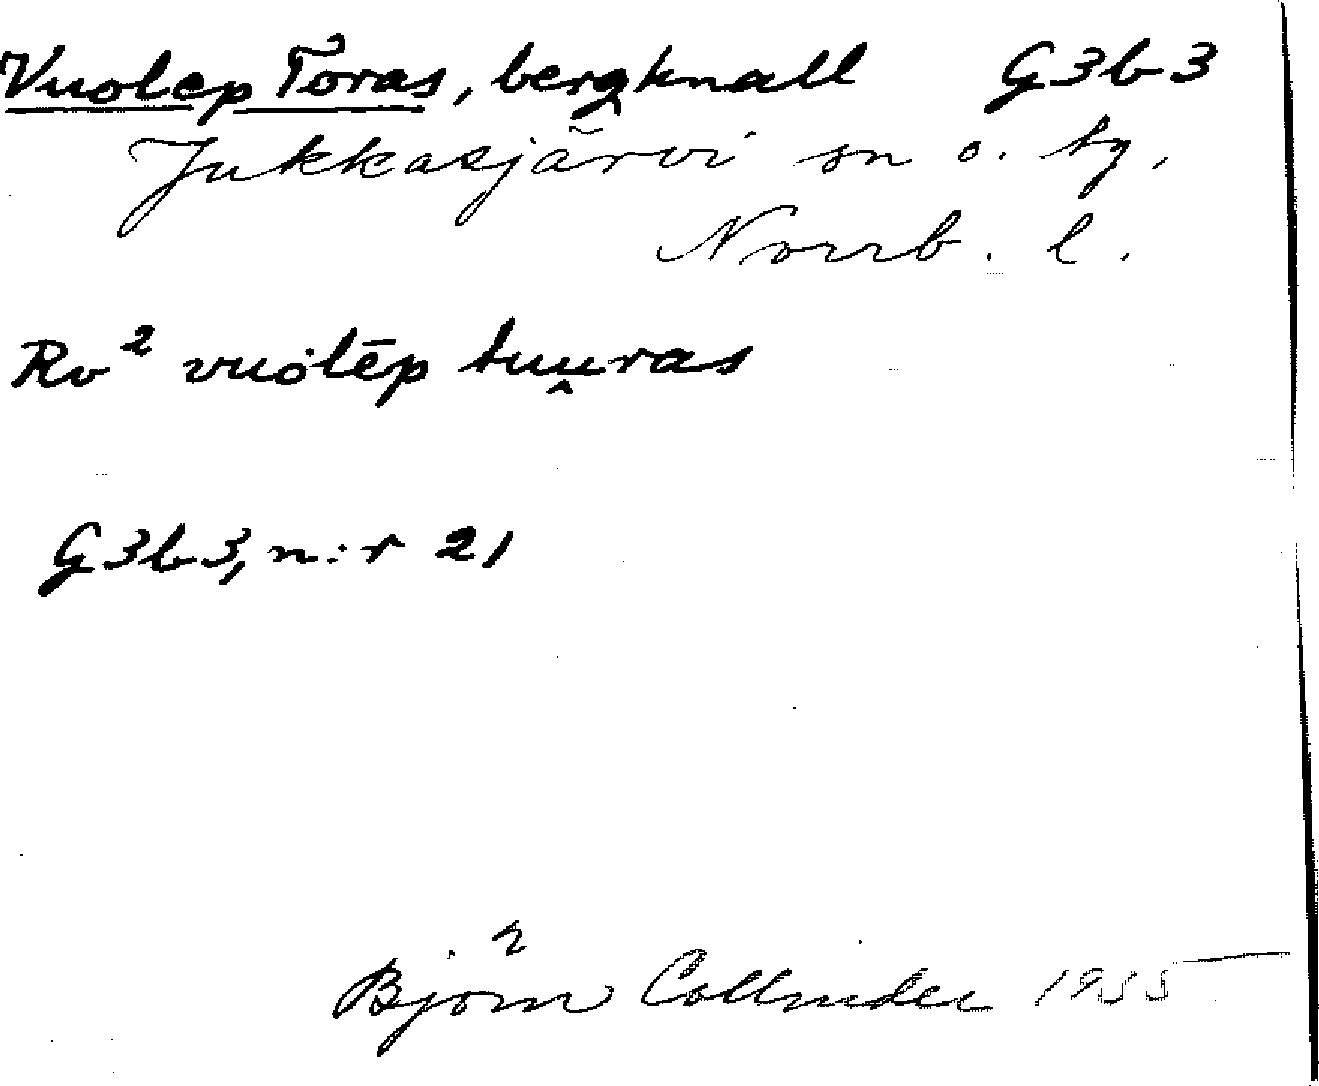 Vuolep Toras, bergknall G3b3
Jukkasjärvi sn o. tg,
Norrb. l.
Rv² vuolēp tuu̬ras
G3b3, n:r 21
Björn Collinder 1955